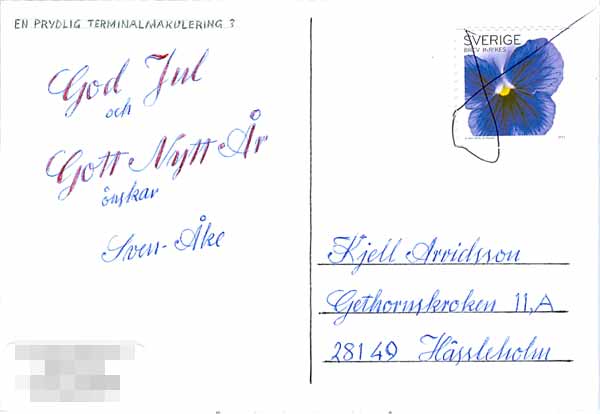 EN PRYDLIG TERMINALMAKULERING 3
God Jul
och
Gott Nytt År
önskar
Sven-Åke
SVERIGE
BREV INRIKES
Kjell Arvidsson
Gethornskroken 11,A
281 49 Hässleholm